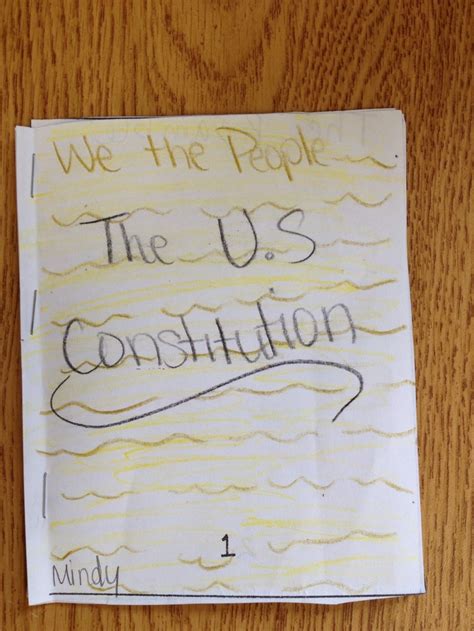 We the People
The U.S
Constitution
1
Mindy